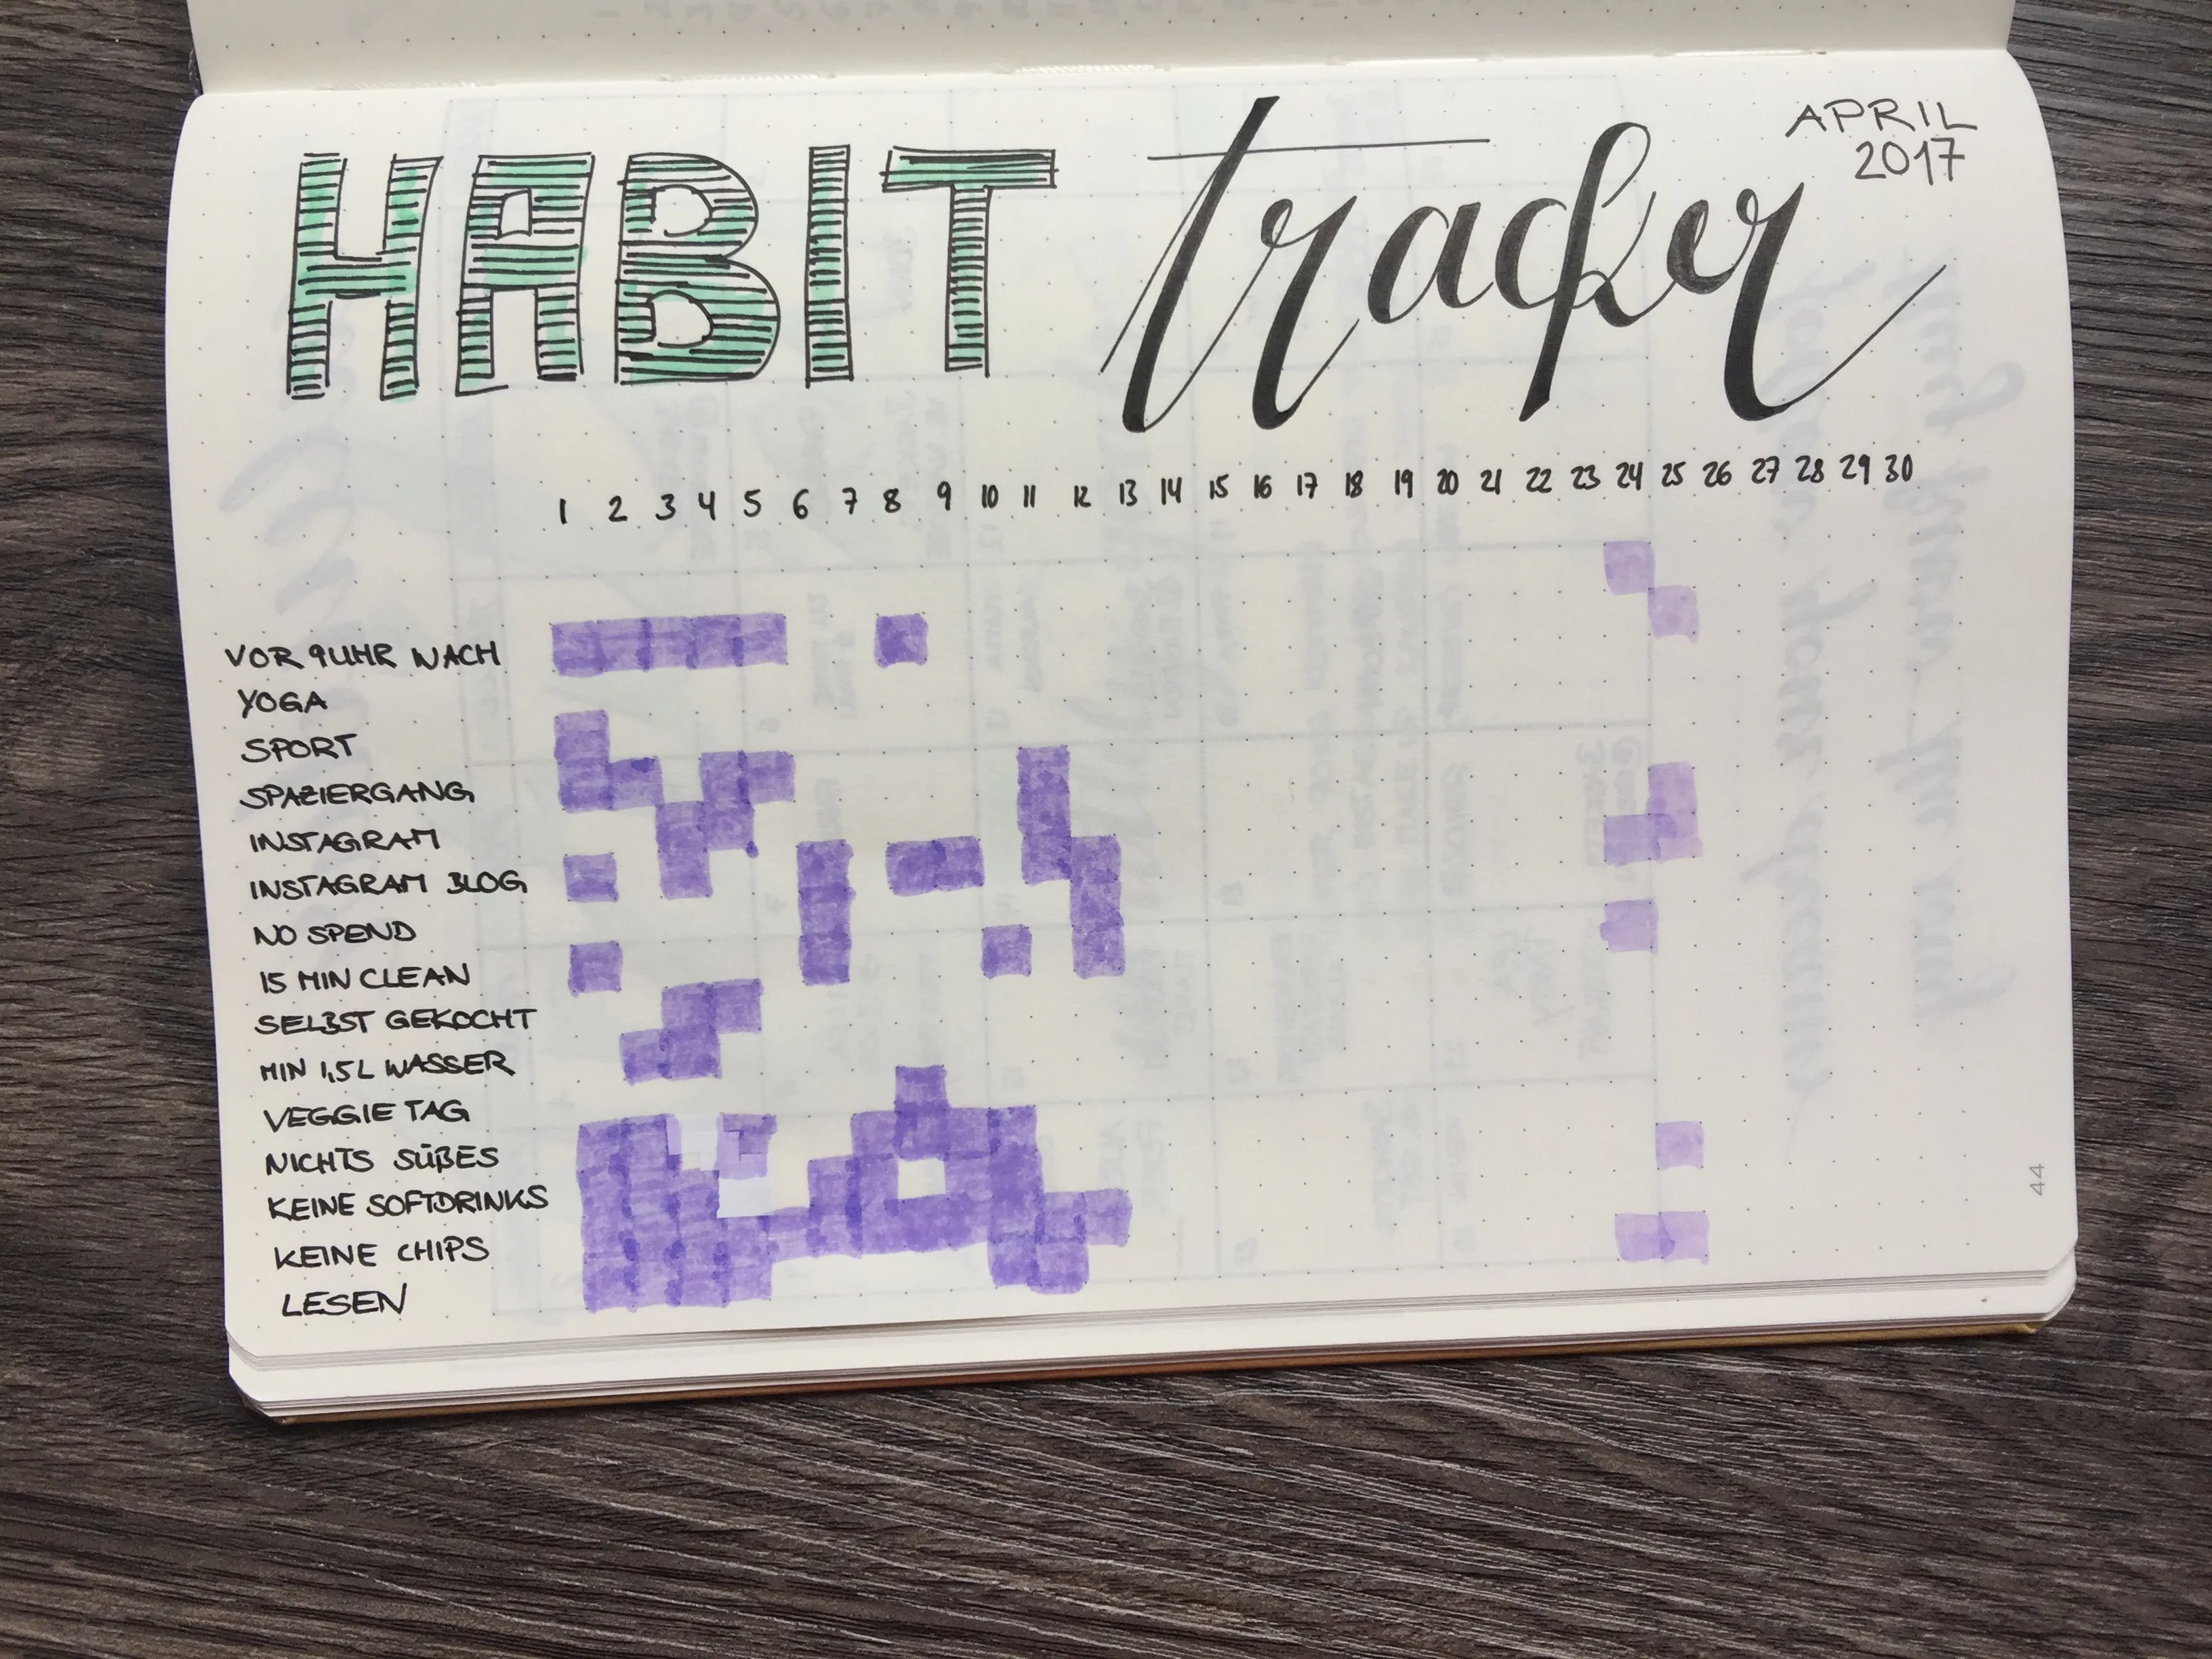 HABIT tracker
APRIL
2017
1 2 3 4 5 6 7 8 9 10 11 12 13 14 15 16 17 18 19 20 21 22 23 24 25 26 27 28 29 30
VOR 9UHR WACH
YOGA
SPORT
SPAZIERGANG
INSTAGRAM
INSTAGRAM BLOG
NO SPEND
15 MIN CLEAN
SELBST GEKOCHT
MIN 1,5L WASSER
VEGGIE TAG
NICHTS SÜßES
KEINE SOFTDRINKS
KEINE CHIPS
LESEN
44